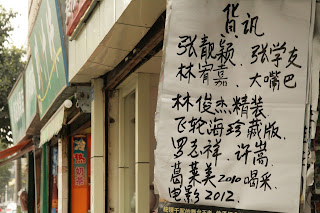 货讯
张靓颖、张学友
林宥嘉、大嘴巴
林俊杰精装
飞轮海珍藏版、
罗志祥、许嵩
葛莱美2010喝采
电影2012.